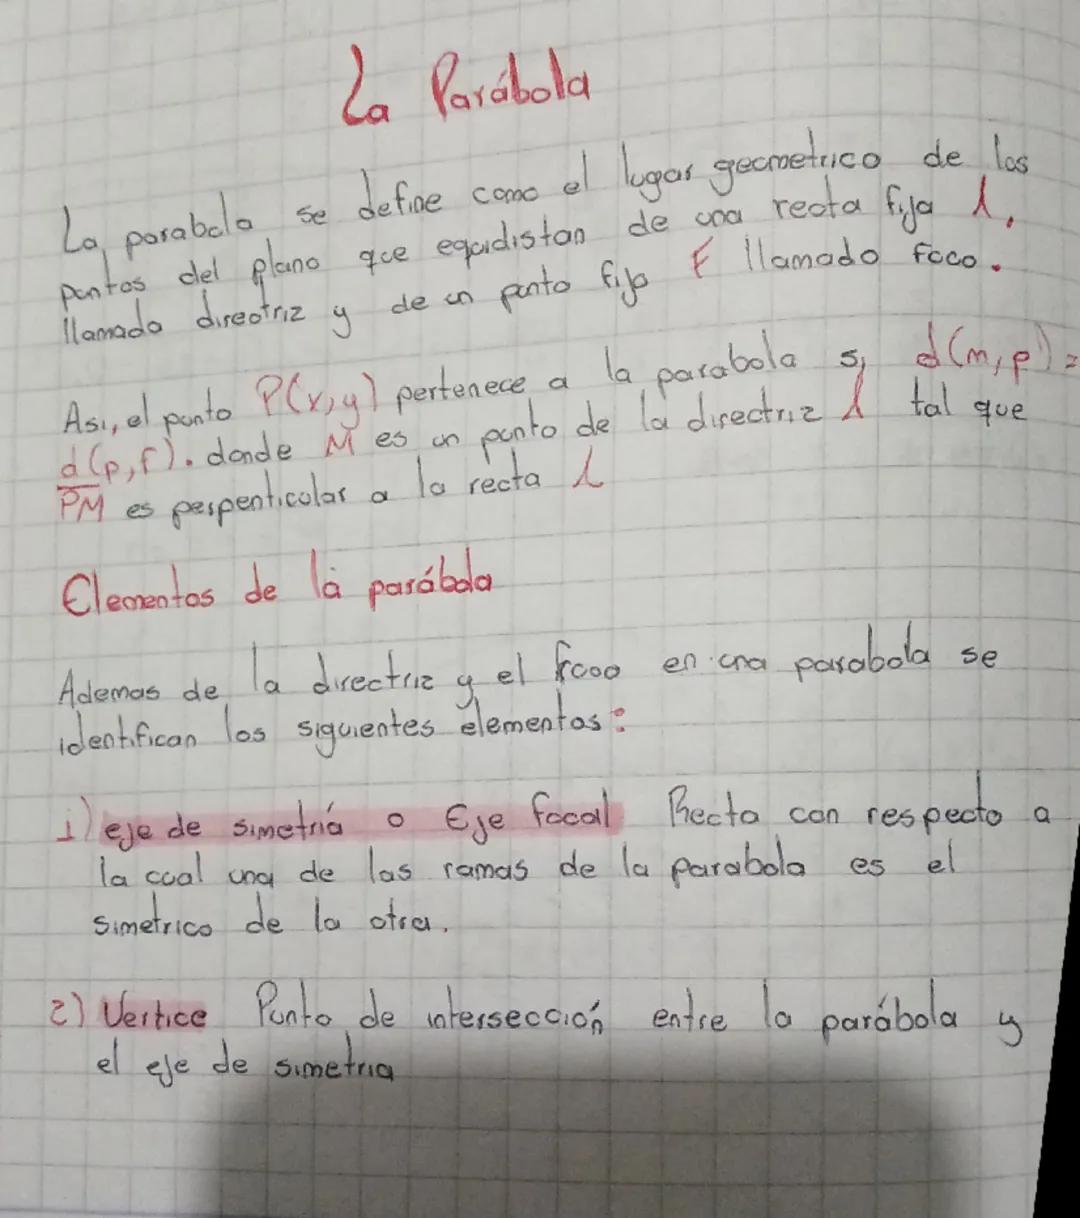 La Parábola
La parabola se define como el lugar geometrico de los
puntos del plano que equidistan de una recta fija l,
llamada directriz y de un punto fijo F llamado foco.
Asi, el punto P(x,y) pertenece a la parabola si d(m,p) =
d(p,f). donde M es un punto de la directriz l tal que
P̅M̅ es perpenticular a la recta l
Elementos de la parábola
Ademas de la directriz y el foco en una parabola se
identifican los siguientes elementos:
1) eje de simetría o Eje focal Recta con respecto a
la cual una de las ramas de la parabola es el
simetrico de la otra.
2) Vertice Punto de intersección entre la parábola y
el eje de simetria